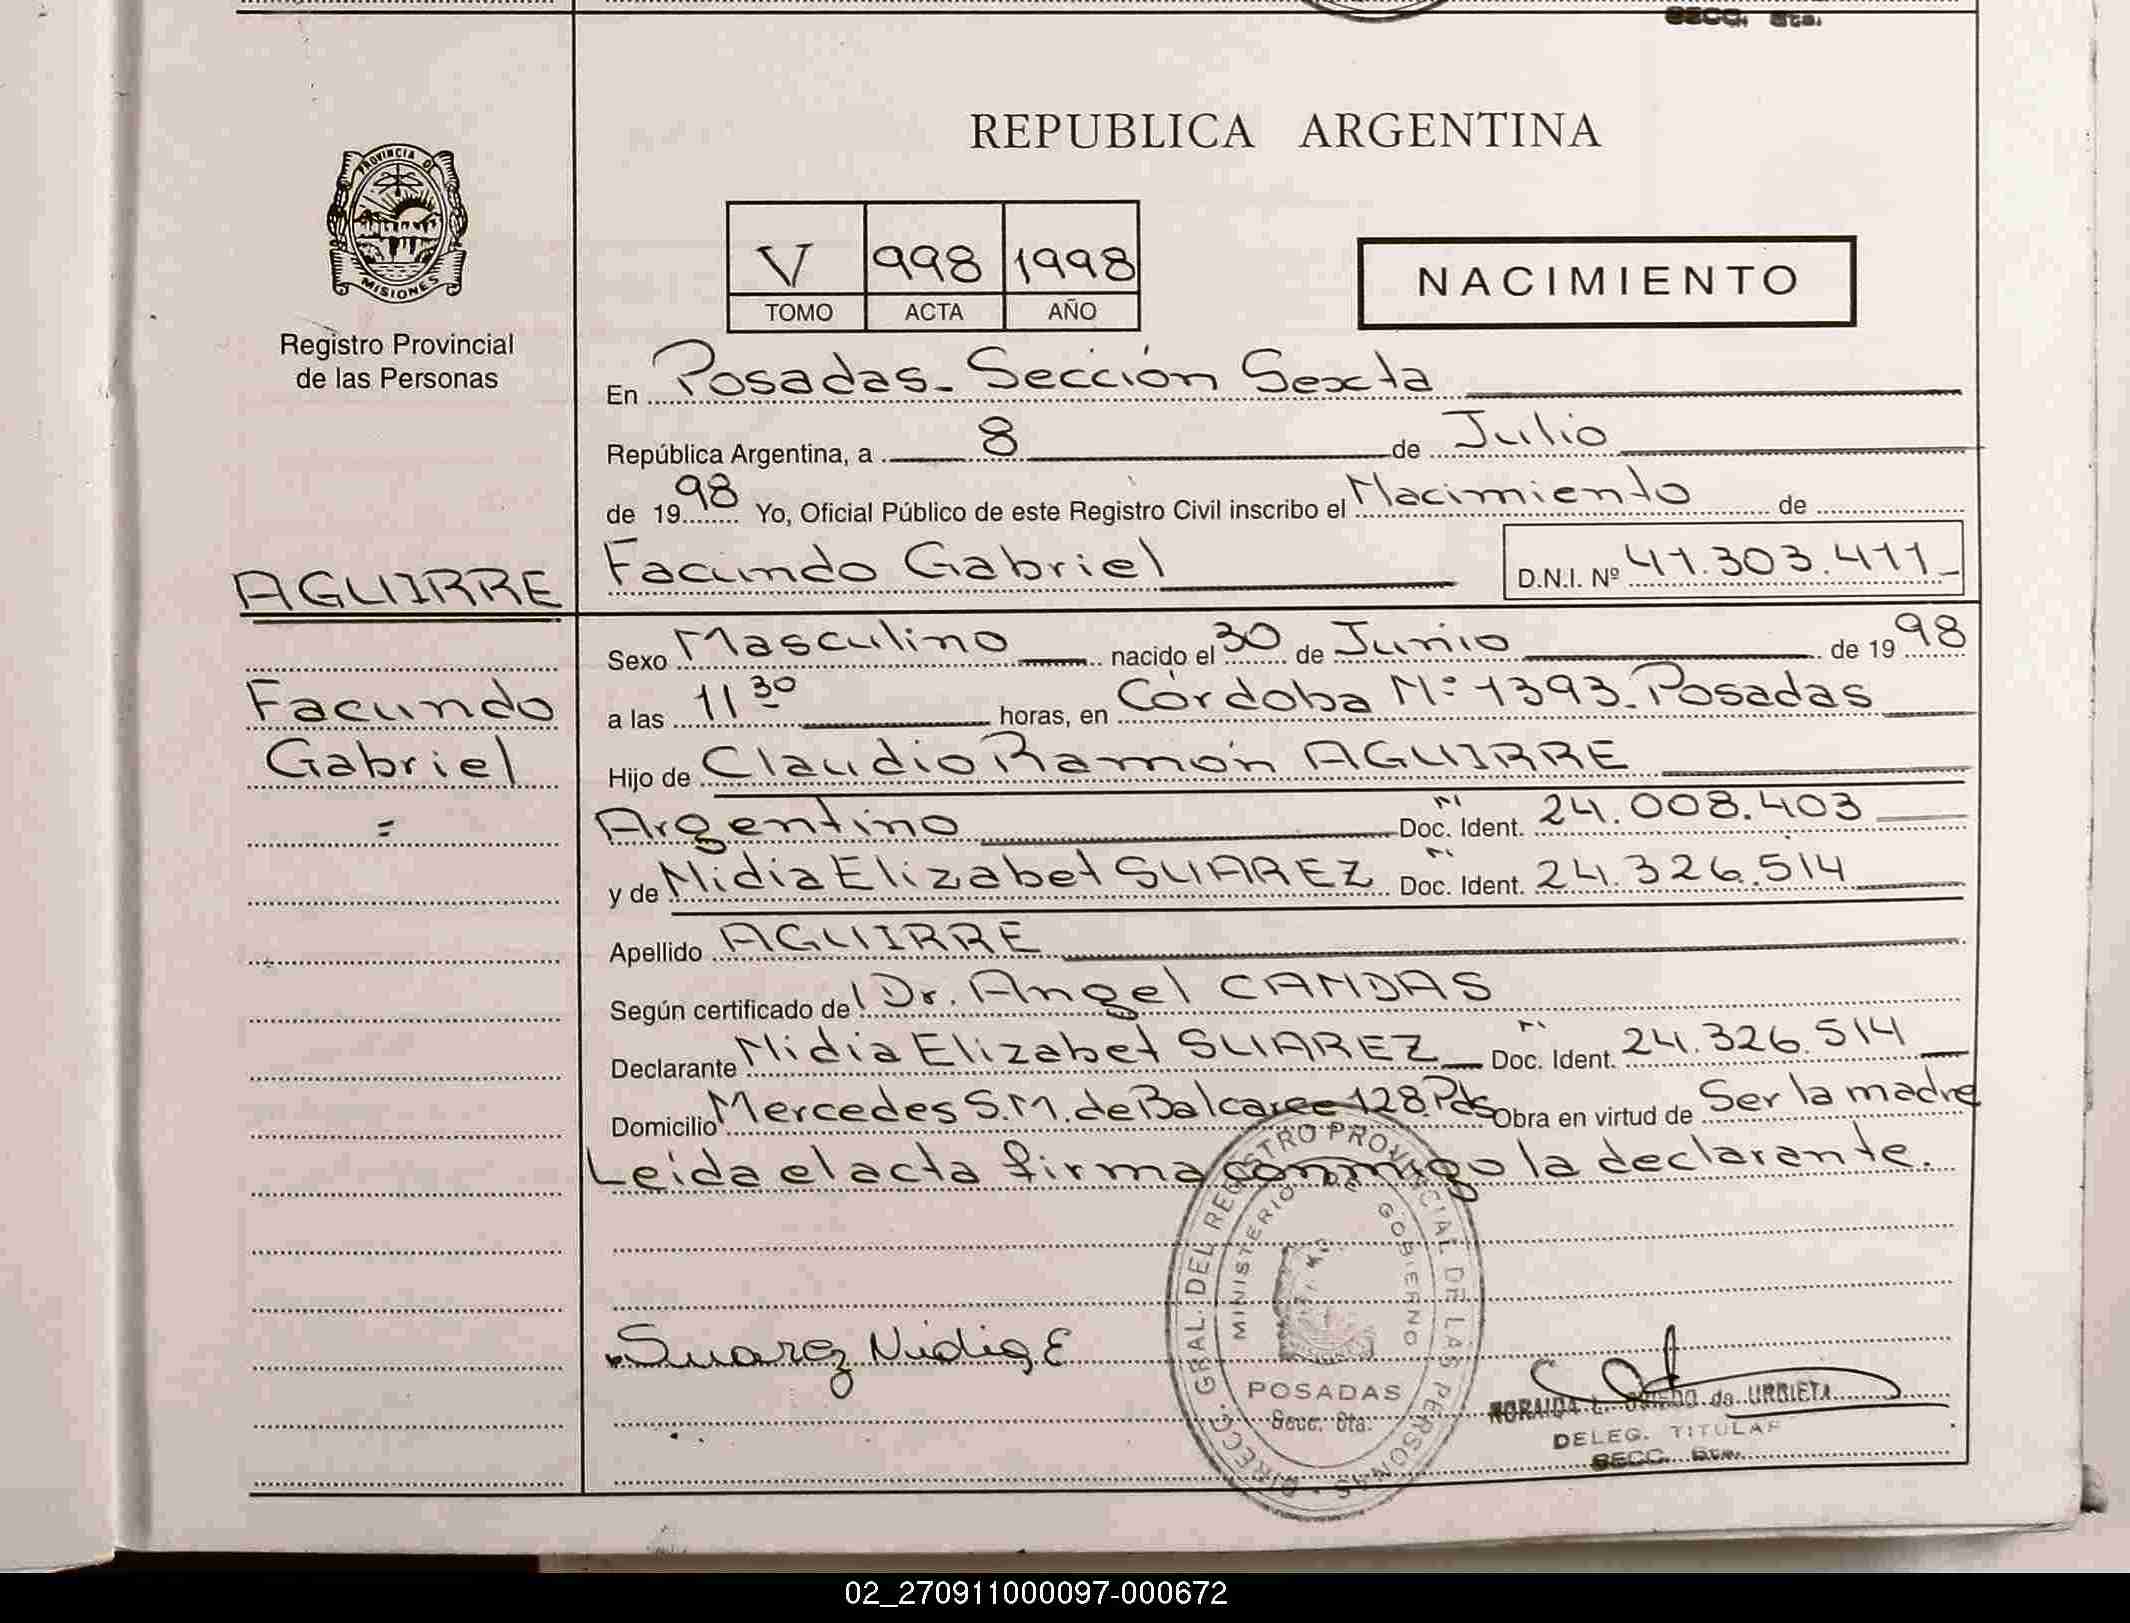 SECC. 6ta.
REPUBLICA ARGENTINA
PROVINCIA DE
MISIONES
Registro Provincial
de las Personas
V 998 1998
TOMO ACTA AÑO
NACIMIENTO
En Posadas - Sección Sexta
República Argentina, a 8 de Julio
de 19 98 Yo, Oficial Público de este Registro Civil inscribo el Nacimiento de
AGUIRRE
Facundo Gabriel D.N.I. Nº 41.303.411
Facundo
Gabriel
=
Sexo Masculino nacido el 30 de Junio de 19 98
a las 11 30 horas, en Córdoba Nº 1393. Posadas
Hijo de Claudio Ramón AGUIRRE
Argentino Doc. Ident. Nº 24.008.403
y de Nidia Elizabet SUAREZ Doc. Ident. Nº 24.326.514
Apellido AGUIRRE
Según certificado del Dr. Angel CANDAS
Declarante Nidia Elizabet SUAREZ Doc. Ident. Nº 24.326.514
Domicilio Mercedes S.M. de Balcarce 128. Pdas Obra en virtud de Ser la madre
Leida el acta firma conmigo la declarante.
Suarez Nidia E
DIRECC. GRAL. DEL REGISTRO PROVINCIAL DE LAS PERSONAS
MINISTERIO DE GOBIERNO
POSADAS
Secc. 6ta.
NORAIDA L. OVIEDO de URRIETA
DELEG. TITULAR
SECC. 6ta.
02_270911000097-000672